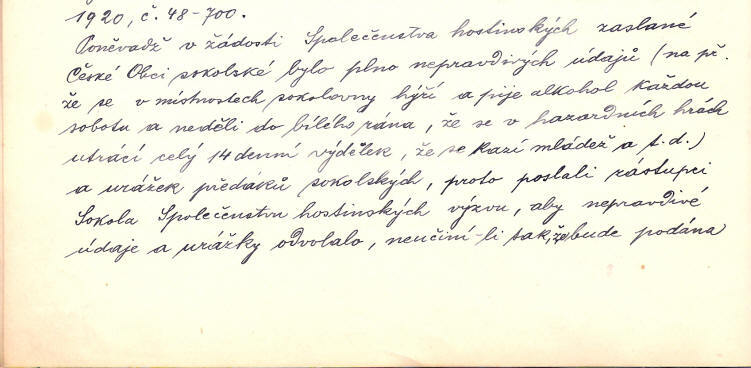 1920, č. 48-700.
Poněvadž v žádosti Společenstva hostinských zaslané
České Obci sokolské bylo plno nepravdivých údajů (na př.
že se v místnostech sokolovny hýří a pije alkohol každou
sobotu a neděli do bílého rána, že se v hazardních hrách
utrácí celý 14denní výdělek, že se kazí mládež a t.d.)
a urážek předáků sokolských, proto poslali zástupci
Sokola Společenstvu hostinských výzvu, aby nepravdivé
údaje a urážky odvolalo, neučiní-li tak, že bude podána